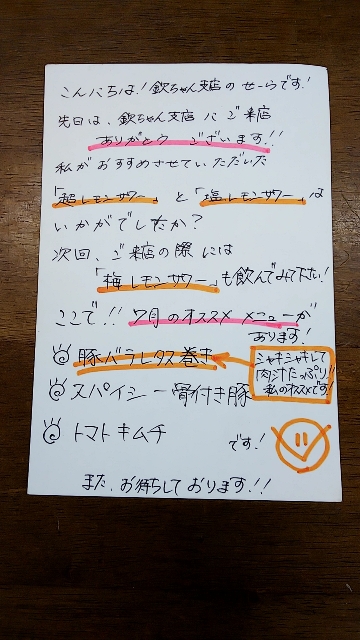 こんにちは!欽ちゃん支店のせーらです!
先日は、欽ちゃん支店にご来店
ありがとうございます!!
私がおすすめさせていただいた
「超レモンサワー」と「塩レモンサワー」は
いかがでしたか?
次回、ご来店の際には
「梅レモンサワー」も飲んでみて下さい!
ここで!!7月のオススメメニューが
あります!
豚バラレタス巻き
シャキシャキして
肉汁たっぷり!!
私のオススメです!
スパイシー骨付き豚
トマトキムチ
です!
また、お待ちしております!!